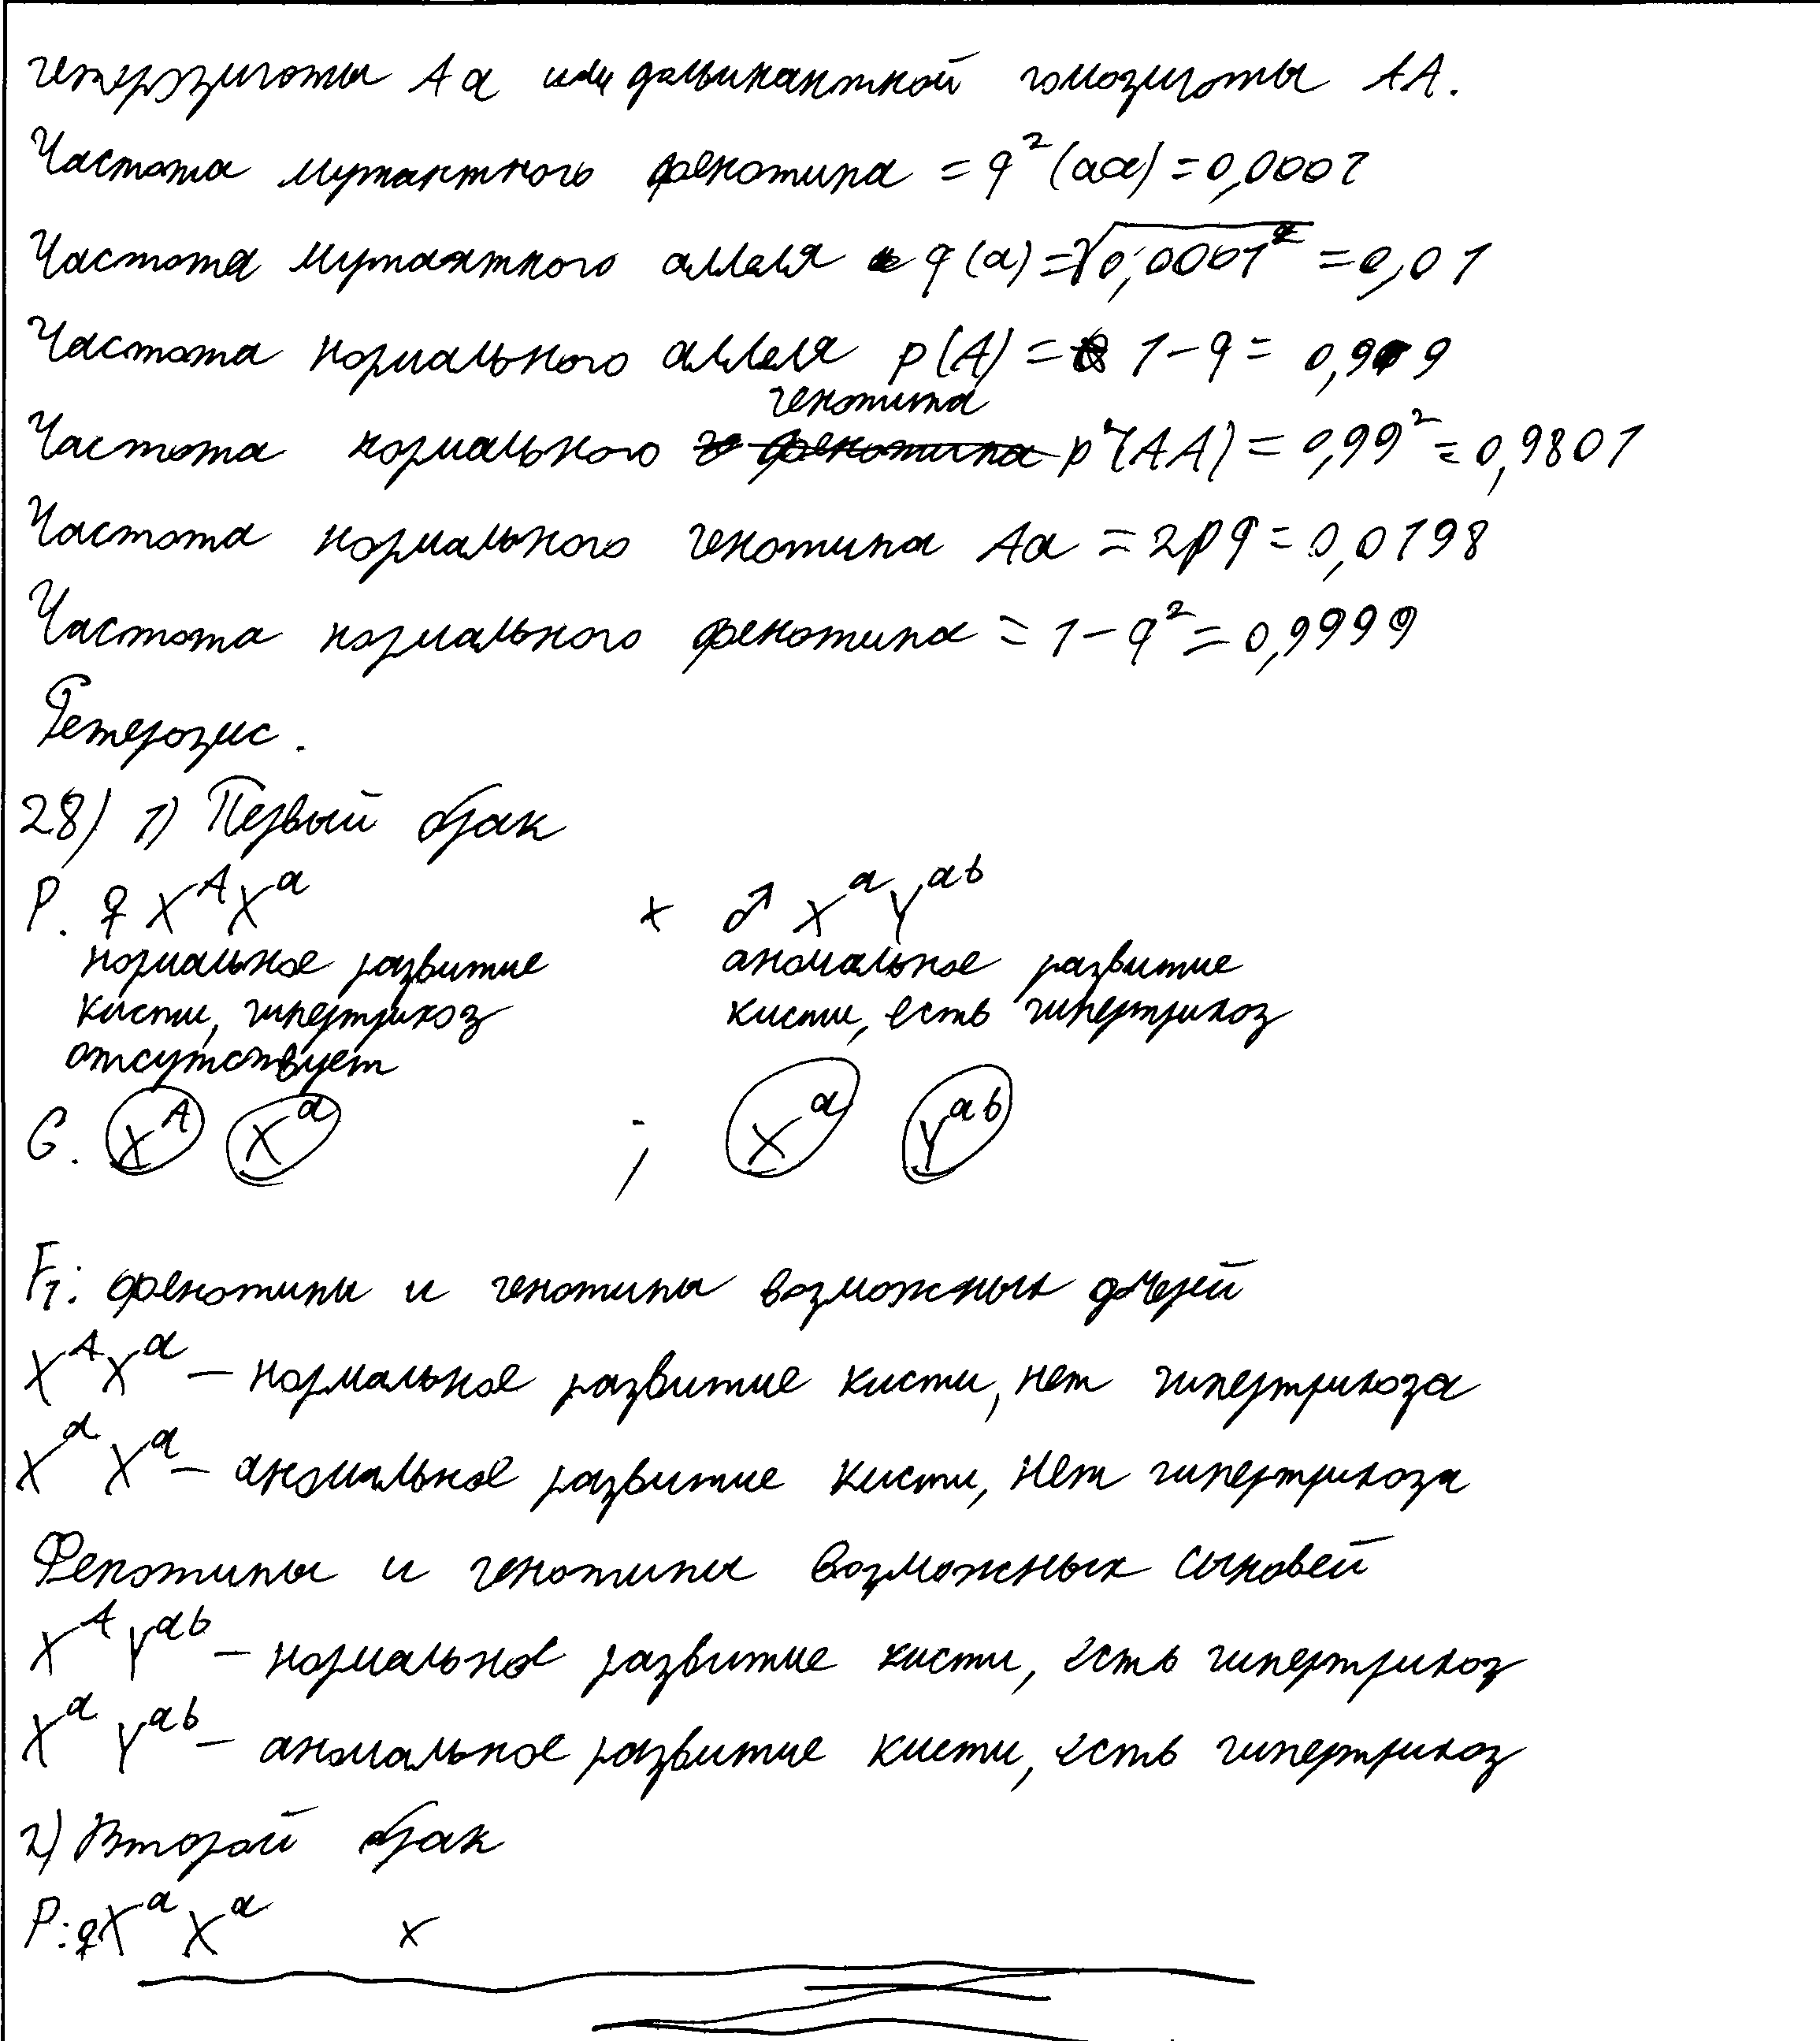 гетерозиготы Aa или доминантной гомозиготы AA.
Частота мутантного фенотипа = q²(aa) = 0,0001
Частота мутантного аллеля q(a) = √0,0001 = 0,01
Частота нормального аллеля p(A) = 1 - q = 0,99
Частота нормального генотипа p²(AA) = 0,99² = 0,9801
Частота нормального генотипа Aa = 2pq = 0,0198
Частота нормального фенотипа = 1 - q² = 0,9999
Гетерозис.
28) 1) Первый брак
P. ♀ XᴬXᵃ x ♂ XᵃYᵃᵇ
нормальное развитие аномальное развитие
кисти, гипертрихоз кисти, есть гипертрихоз
отсутствует
G. Xᴬ Xᵃ ; Xᵃ Yᵃᵇ
F₁: фенотипы и генотипы возможных дочерей
XᴬXᵃ — нормальное развитие кисти, нет гипертрихоза
XᵃXᵃ — аномальное развитие кисти, нет гипертрихоза
Фенотипы и генотипы возможных сыновей
XᴬYᵃᵇ — нормальное развитие кисти, есть гипертрихоз
XᵃYᵃᵇ — аномальное развитие кисти, есть гипертрихоз
2) Второй брак
P: ♀XᵃXᵃ x